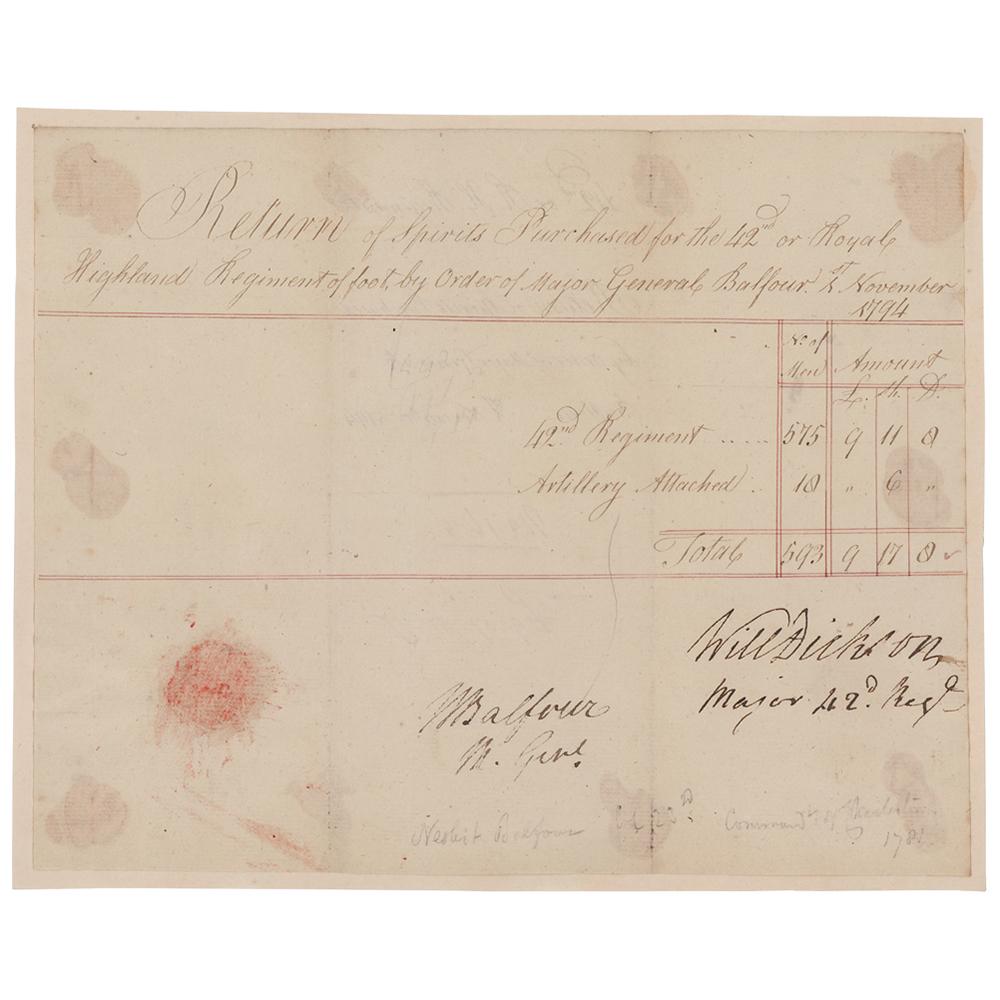 Return of Spirits Purchased for the 42nd or Royal
Highland Regiment of foot, by Order of Major General Balfour. 1st November
1794
No. of
Men
Amount
£. Sh. D.
42nd Regiment ..... 575 9 11 8
Artillery Attached . 18 " 6 "
Total 593 9 17 8
Will Dickson
Major 42d. Regt
NBalfour
M. Genl.
Nesbit Balfour 23d Command
1781